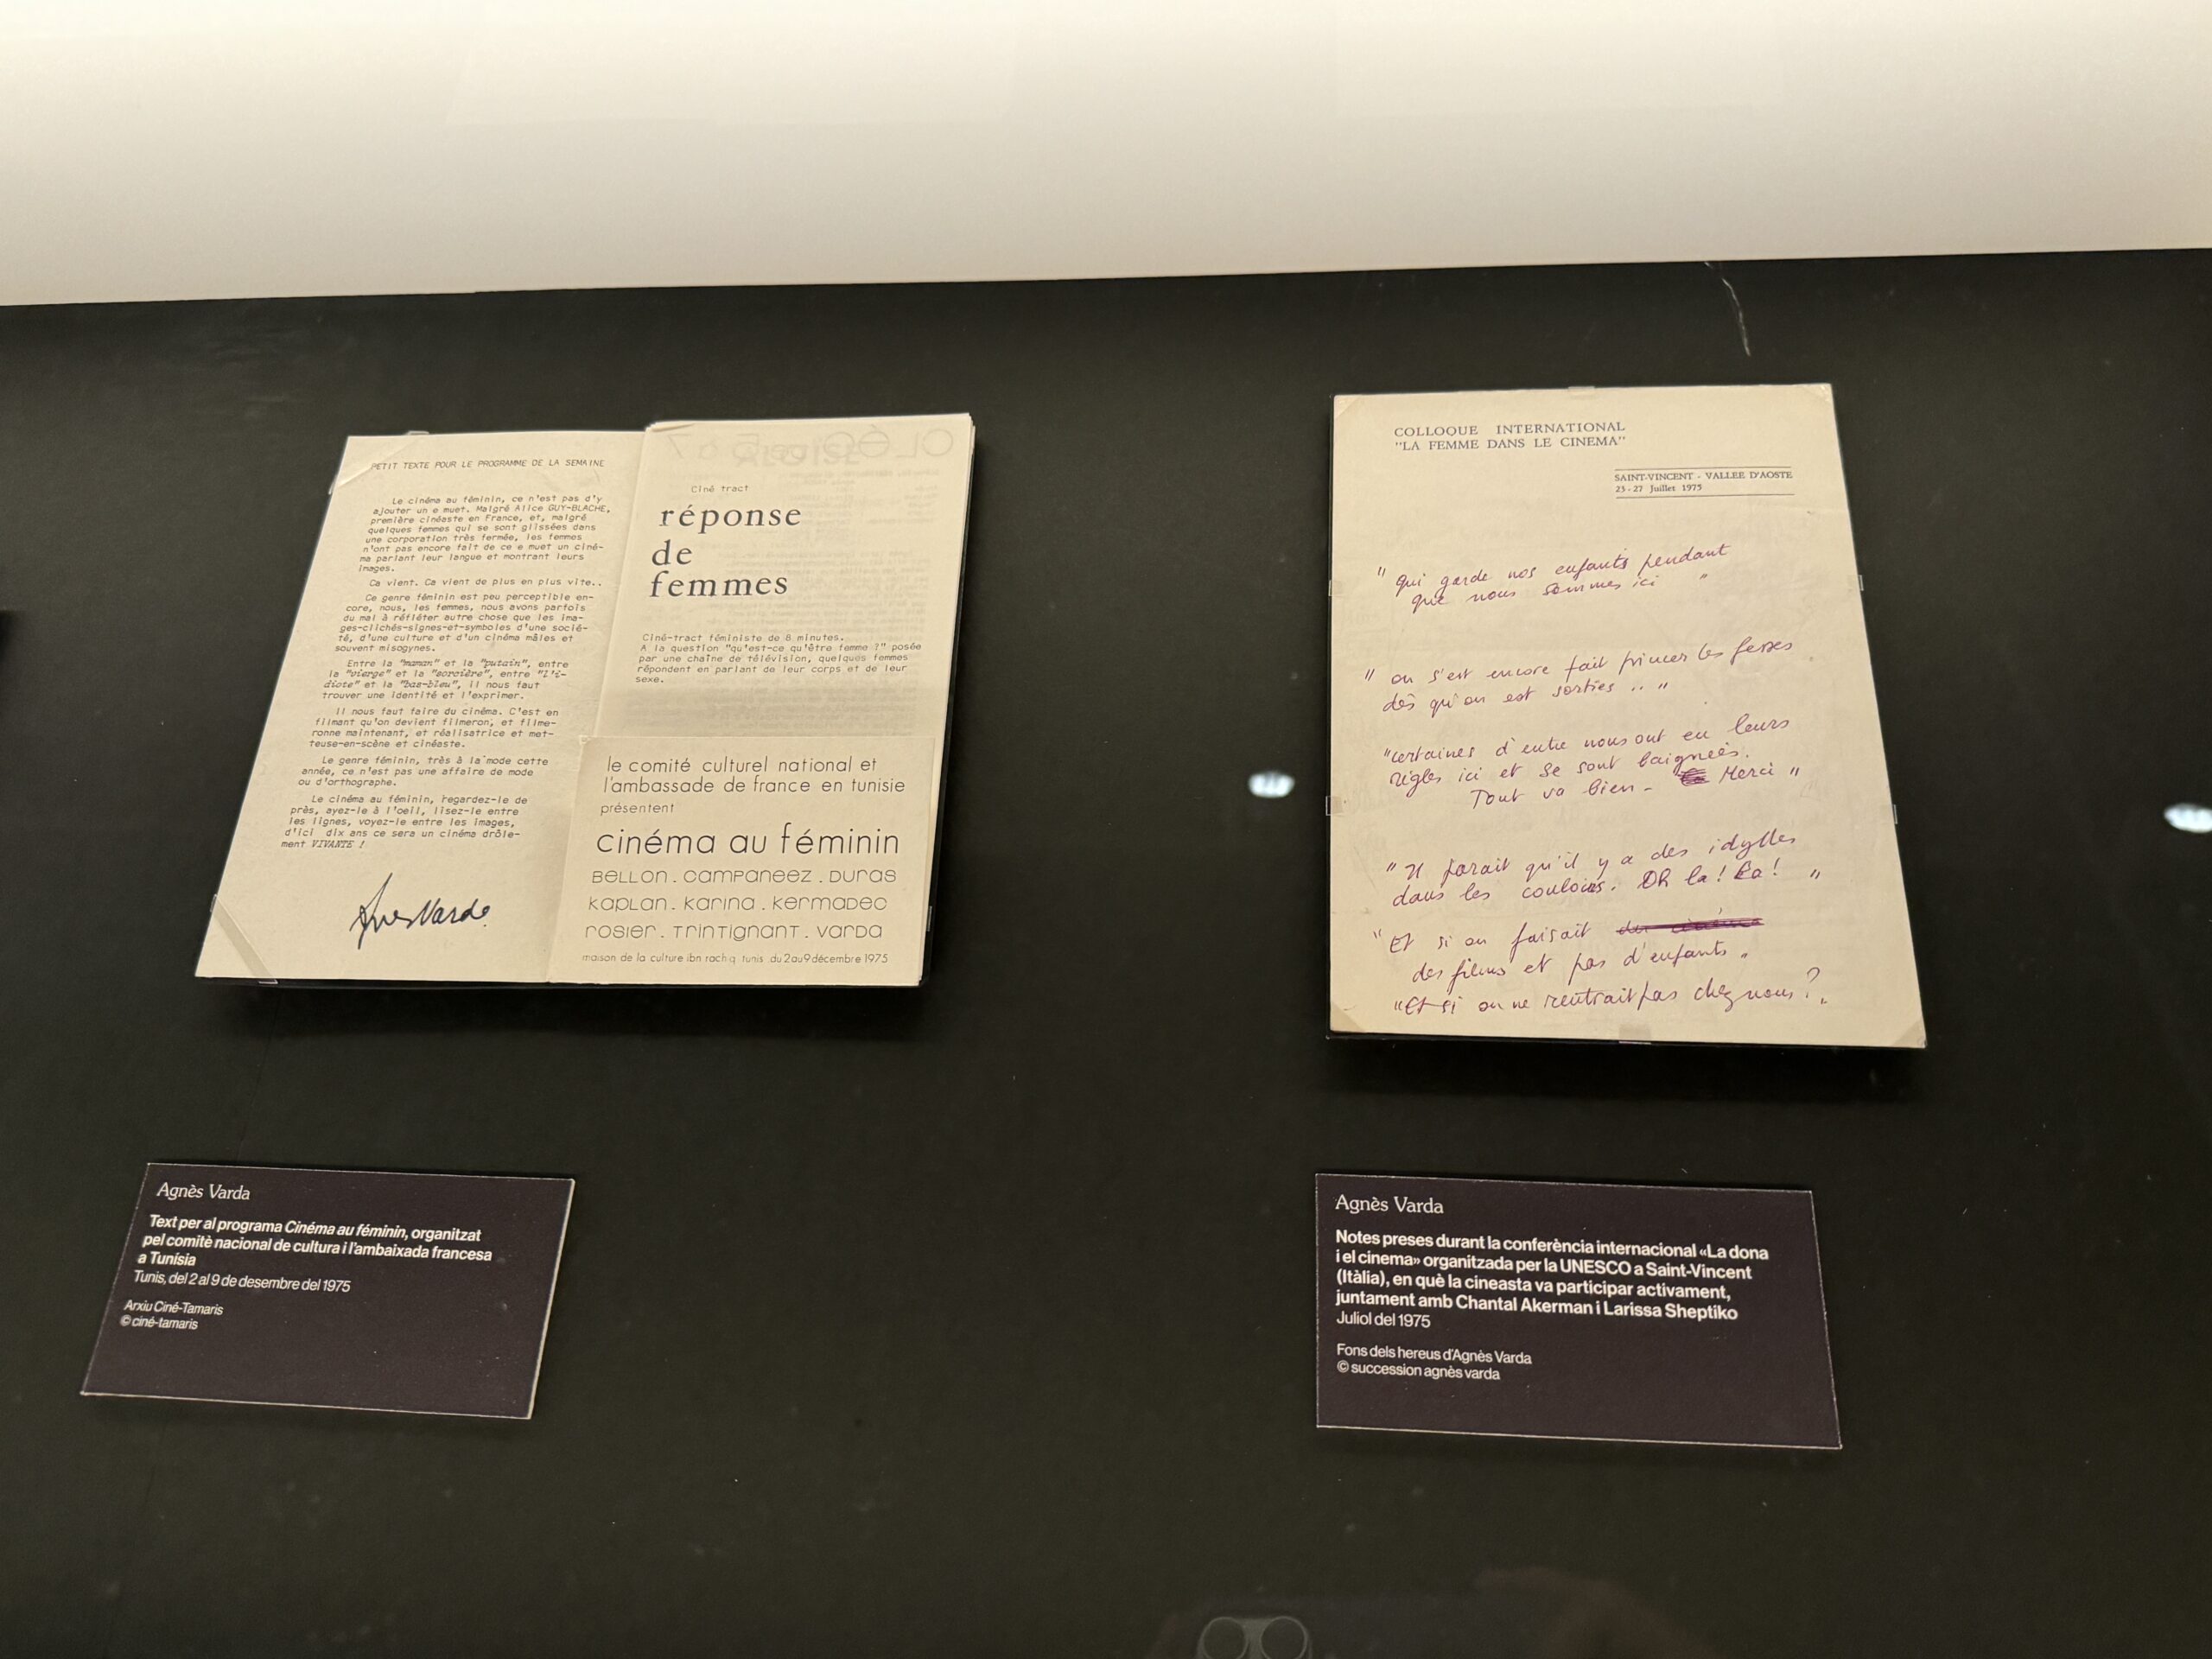 PETIT TEXTE POUR LE PROGRAMME DE LA SEMAINE
Le cinéma au féminin, ce n'est pas d'y
ajouter un e muet. Malgré Alice GUY-BLACHE,
première cinéaste en France, et, malgré
quelques femmes qui se sont glissées dans
une corporation très fermée, les femmes
n'ont pas encore fait de ce e muet un ciné-
ma parlant leur langue et montrant leurs
images.
Ca vient. Ca vient de plus en plus vite..
Ce genre féminin est peu perceptible en-
core, nous, les femmes, nous avons parfois
du mal à réfléter autre chose que les ima-
ges-clichés-signes-et-symboles d'une socié-
té, d'une culture et d'un cinéma mâles et
souvent misogynes.
Entre la "maman" et la "putain", entre
la "vierge" et la "sorcière", entre "l'i-
diote" et la "bas-bleu", il nous faut
trouver une identité et l'exprimer.
Il nous faut faire du cinéma. C'est en
filmant qu'on devient filmeron, et filme-
ronne maintenant, et réalisatrice et met-
teuse-en-scène et cinéaste.
Le genre féminin, très à la mode cette
année, ce n'est pas une affaire de mode
ou d'orthographe.
Le cinéma au féminin, regardez-le de
près, ayez-le à l'oeil, lisez-le entre
les lignes, voyez-le entre les images,
d'ici dix ans ce sera un cinéma drôle-
ment VIVANTE !
Agnes Varda
CLÉO 5 à 7
Ciné tract
réponse
de
femmes
Ciné-tract féministe de 8 minutes.
A la question "qu'est-ce qu'être femme ?" posée
par une chaîne de télévision, quelques femmes
répondent en parlant de leur corps et de leur
sexe.
le comité culturel national et
l'ambassade de france en tunisie
présentent
cinéma au féminin
BELLON . CAMPANEEZ . DURAS
KAPLAN . KARINA . KERMADEC
ROSIER . TRINTIGNANT . VARDA
maison de la culture ibn rachiq tunis du 2 au 9 décembre 1975
COLLOQUE INTERNATIONAL
"LA FEMME DANS LE CINEMA"
SAINT-VINCENT - VALLEE D'AOSTE
23 - 27 Juillet 1975
"qui garde nos enfants pendant
que nous sommes ici"
"on s'est encore fait pincer les fesses
dès qu'on est sorties .. "
"certaines d'entre nous ont eu leurs
règles ici et se sont baignées.
Tout va bien - Merci"
"Il parait qu'il y a des idylles
dans les couloirs. Oh la! La! "
"Et si on faisait
des films et pas d'enfants"
"Et si on ne rentrait pas chez nous?"
Agnès Varda
Text per al programa Cinéma au féminin, organitzat
pel comitè nacional de cultura i l'ambaixada francesa
a Tunísia
Tunis, del 2 al 9 de desembre del 1975
Arxiu Ciné-Tamaris
© ciné-tamaris
Agnès Varda
Notes preses durant la conferència internacional «La dona
i el cinema» organitzada per la UNESCO a Saint-Vincent
(Itàlia), en què la cineasta va participar activament,
juntament amb Chantal Akerman i Larissa Sheptiko
Juliol del 1975
Fons dels hereus d'Agnès Varda
© succession agnès varda